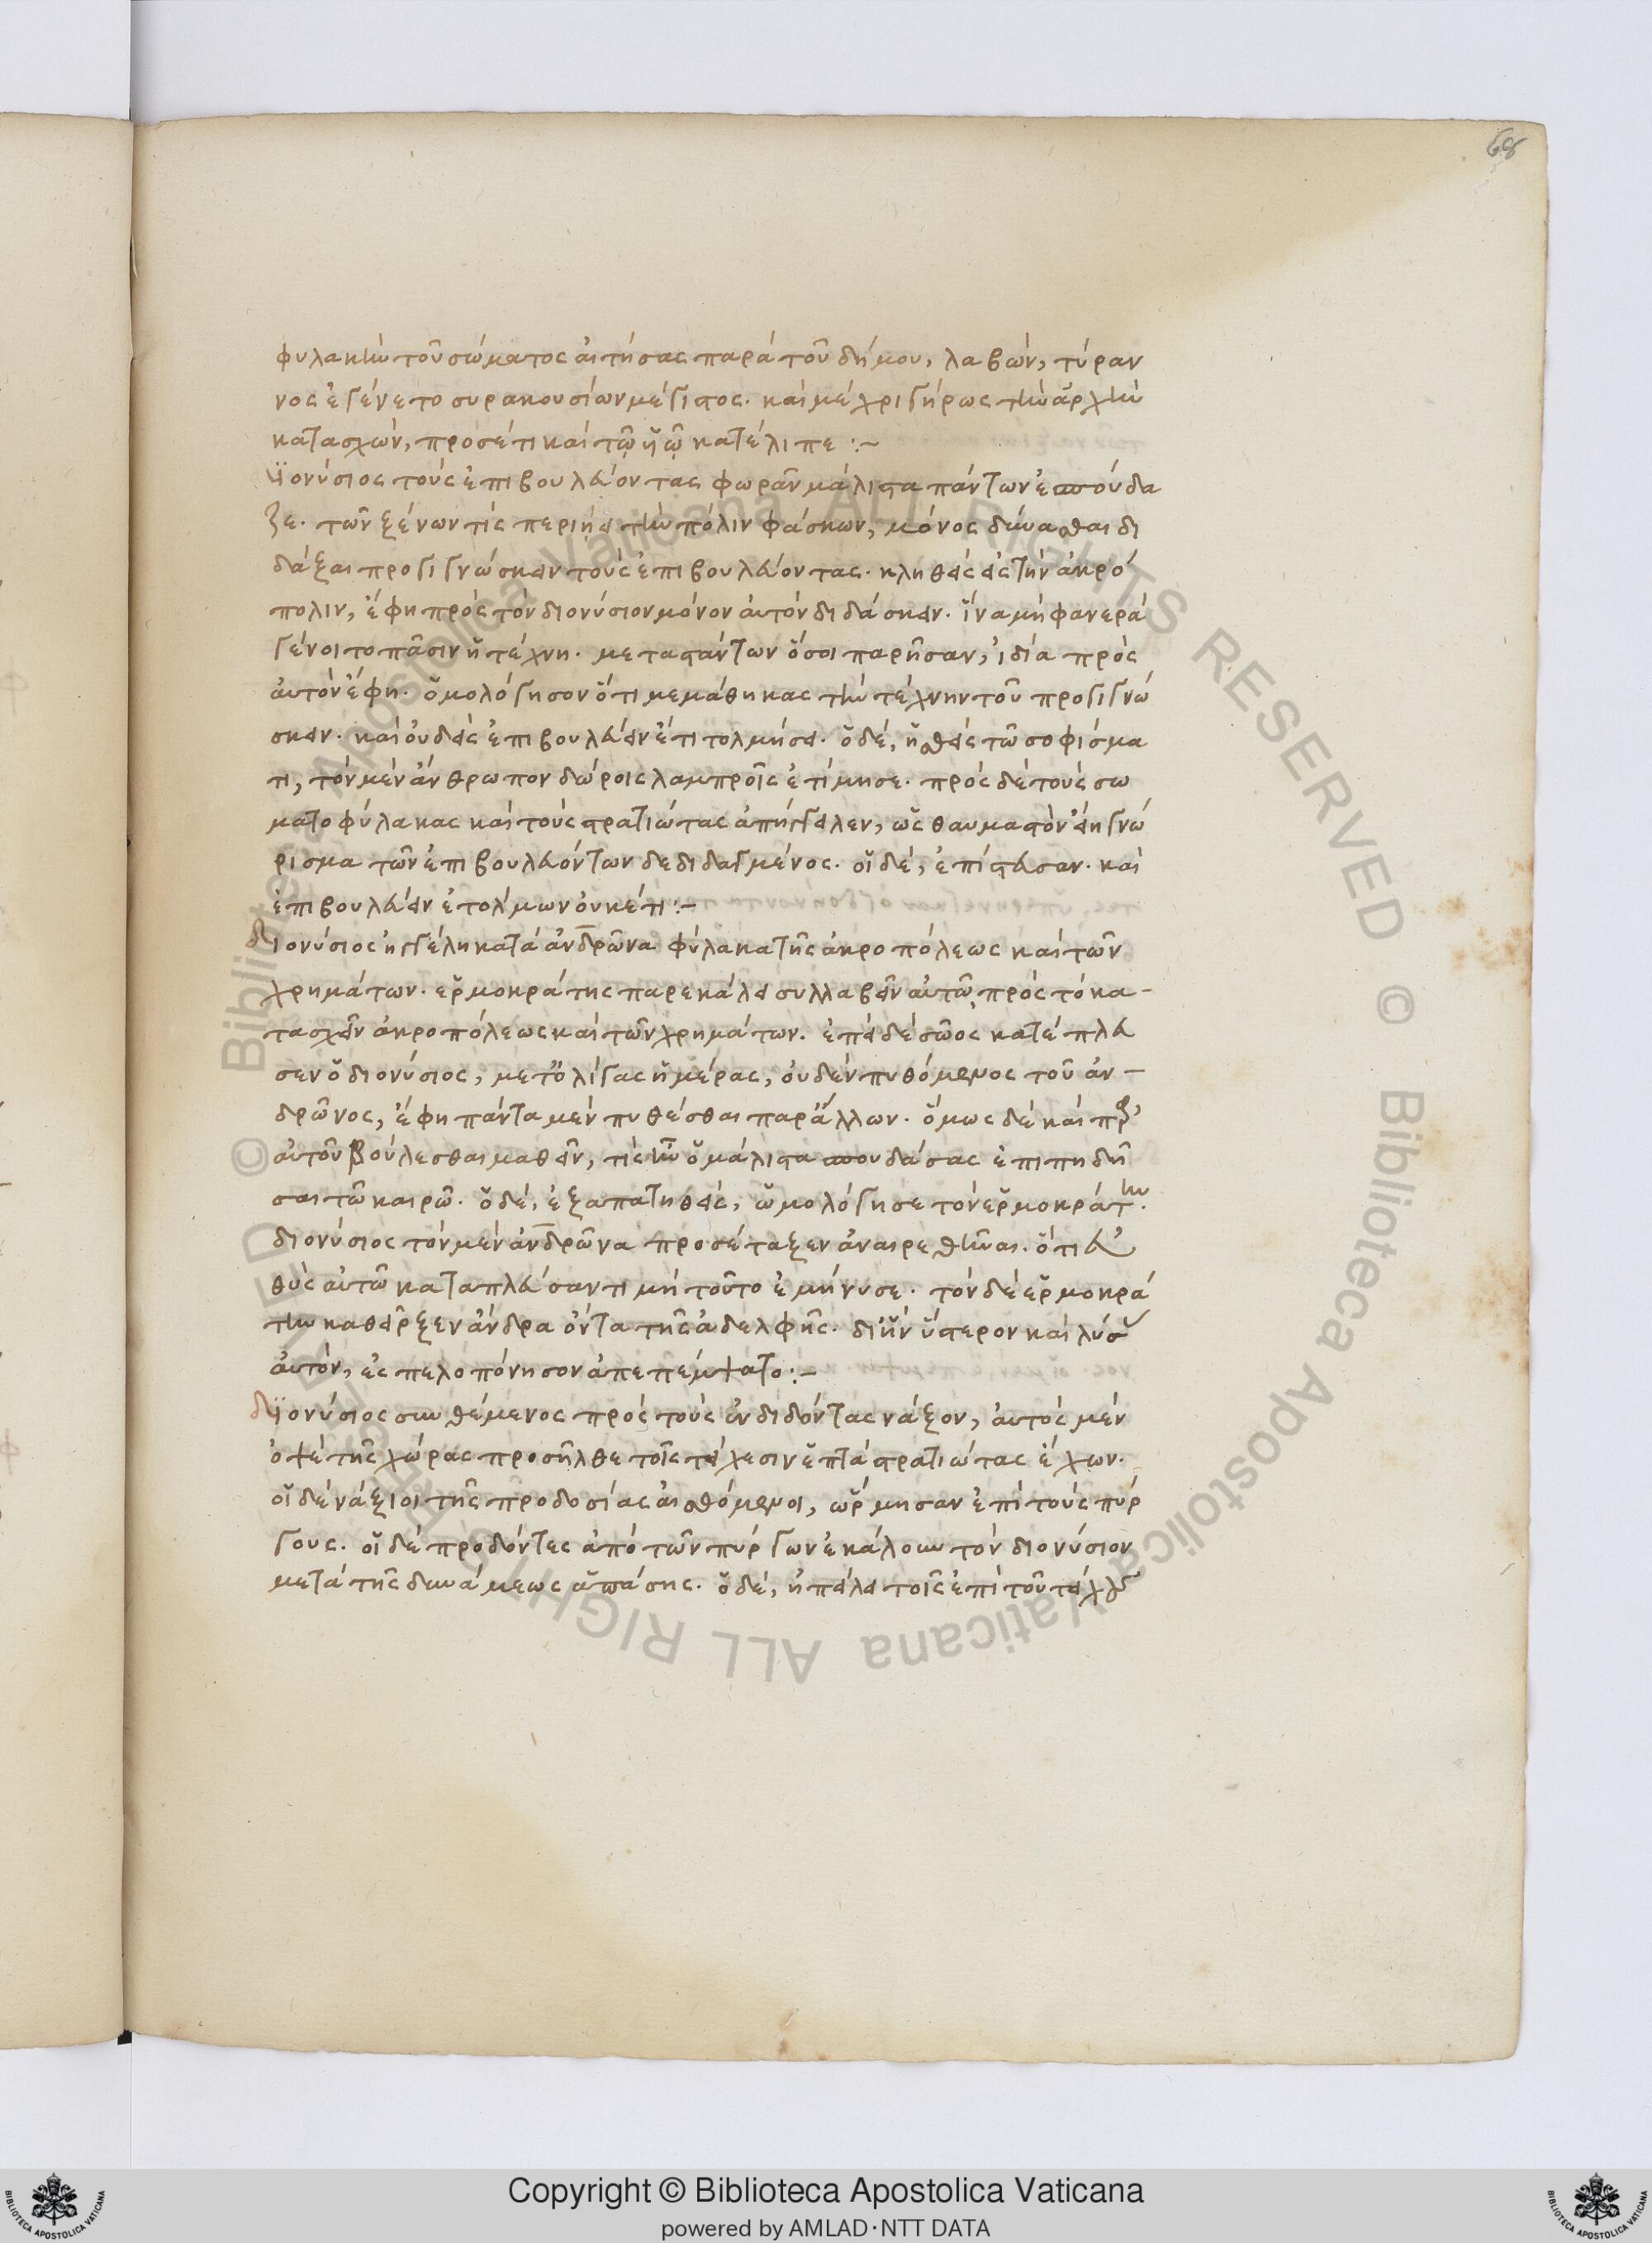 68
φυλακὴν τοῦ σώματος αἰτήσας παρὰ τοῦ δήμου, λαβὼν, τύραν
νος ἐγένετο συρακουσίων μέγιστος. καὶ μέχρι γήρως τὴν ἀρχὴν
κατασχών, προσέτι καὶ τῷ ὑῷ κατέλιπε :~
ϊονύσιος τοὺς ἐπιβουλεύοντας φωρᾶν μάλιστα πάντων ἐσπούδα
ζε. τῶν ξένων τίς περιῄει τὴν πόλιν φάσκων, μόνος δύνασθαι δι
δάξαι προγιγνώσκειν τοὺς ἐπιβουλεύοντας. κληθεὶς εἰς τὴν ἀκρό
πολιν, ἔφη πρὸς τὸν διονύσιον μόνον αὐτὸν διδάσκειν. ἵνα μὴ φανερὰ
γένοιτο πᾶσιν ἡ τέχνη. μεταστάντων ὅσοι παρῆσαν, ἰδία πρὸς
αὐτὸν ἔφη. ὁμολόγησον ὅτι μεμάθηκας τὴν τέχνην τοῦ προγιγνώ
σκειν. καὶ οὐδεὶς ἐπιβουλεύειν ἔτι τολμήσει. ὁ δὲ, ἡσθεὶς τῶ σοφίσμα
τι, τὸν μὲν ἄνθρωπον δώροις λαμπροῖς ἐτίμησε. πρὸς δὲ τοὺς σω
ματοφύλακας καὶ τοὺς στρατιώτας ἀπήγγειλεν, ὡς θαυμαστὸν εἴη γνώ
ρισμα τῶν ἐπιβουλευόντων δεδιδαγμένος. οἱ δὲ, ἐπίστευσαν. καὶ
ἐπιβουλεύειν ἐτόλμων οὐκέτι :~
διονύσιος ἠγγέλη κατὰ ἀνδρῶνα φύλακα τῆς ἀκροπόλεως καὶ τῶν
χρημάτων. ἑρμοκράτης παρεκάλει συλλαβεῖν αὐτῷ πρὸς τὸ κα-
τασχεῖν ἀκροπόλεως καὶ τῶν χρημάτων. ἐπεὶ δὲ σῶος κατέπλευ
σεν ὁ διονύσιος, μετ' ὀλίγας ἡμέρας, οὐδὲν πυθόμενος τοῦ ἀν-
δρῶνος, ἔφη πάντα μὲν πυθέσθαι παρ' ἄλλων. ὅμως δὲ καὶ παρ'
αὐτοῦ βούλεσθαι μαθεῖν, τίς ἦν ὁ μάλιστα σπουδάσας ἐπιπηδῆ
σαι τῶ καιρῶ. ὁ δὲ, ἐξαπατηθεὶς, ὡμολόγησε τὸν ἑρμοκράτην.
διονύσιος τὸν μὲν ἀνδρῶνα προσέταξεν ἀναιρεθῆναι. ὅτι εὐ
θὺς αὐτῶ καταπλεύσαντι μὴ τοῦτο ἐμήνυσε. τὸν δὲ ἑρμοκρά
την καθεῖρξεν ἄνδρα ὄντα τῆς ἀδελφῆς. δι' ἣν ὕστερον καὶ λύσας
αὐτὸν, εἰς πελοπόνησον ἀπεπέμψατο :~
διονύσιος συνθέμενος πρὸς τοὺς ἐνδιδόντας νάξον, αὐτὸς μὲν
ὀψὲ τῆς χώρας προσῆλθε τοῖς τείχεσιν ἑπτὰ στρατιώτας ἔχων.
οἱ δὲ νάξιοι τῆς προδοσίας αἰσθόμενοι, ὥρμησαν ἐπὶ τοὺς πύρ
γους. οἱ δὲ προδόντες ἀπὸ τῶν πύργων ἐκάλουν τὸν διονύσιον
μετὰ τῆς δυνάμεως ἁπάσης. ὁ δὲ, ἠπείλει τοῖς ἐπὶ τοῦ τείχους
© Biblioteca Apostolica Vaticana ALL RIGHTS RESERVED
Copyright © Biblioteca Apostolica Vaticana
powered by AMLAD·NTT DATA
BIBLIOTECA APOSTOLICA VATICANA